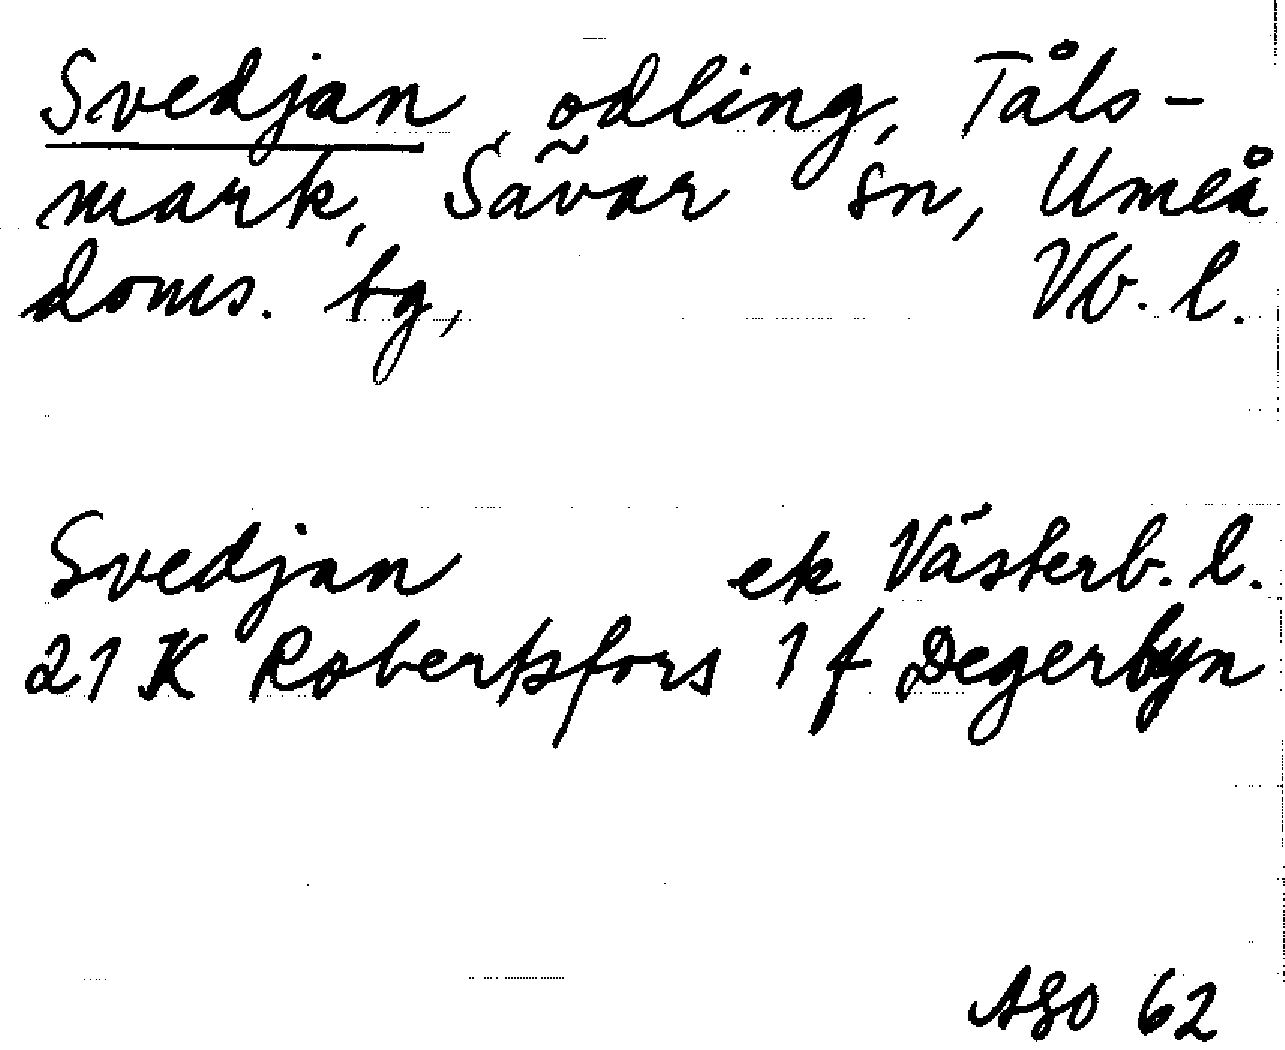 Svedjan, odling, Tåls-
mark, Sävar sn, Umeå
doms. tg, Vb. l.
Svedjan ek Västerb. l.
21 K Robertsfors 1 f Degerbyn
ASO 62